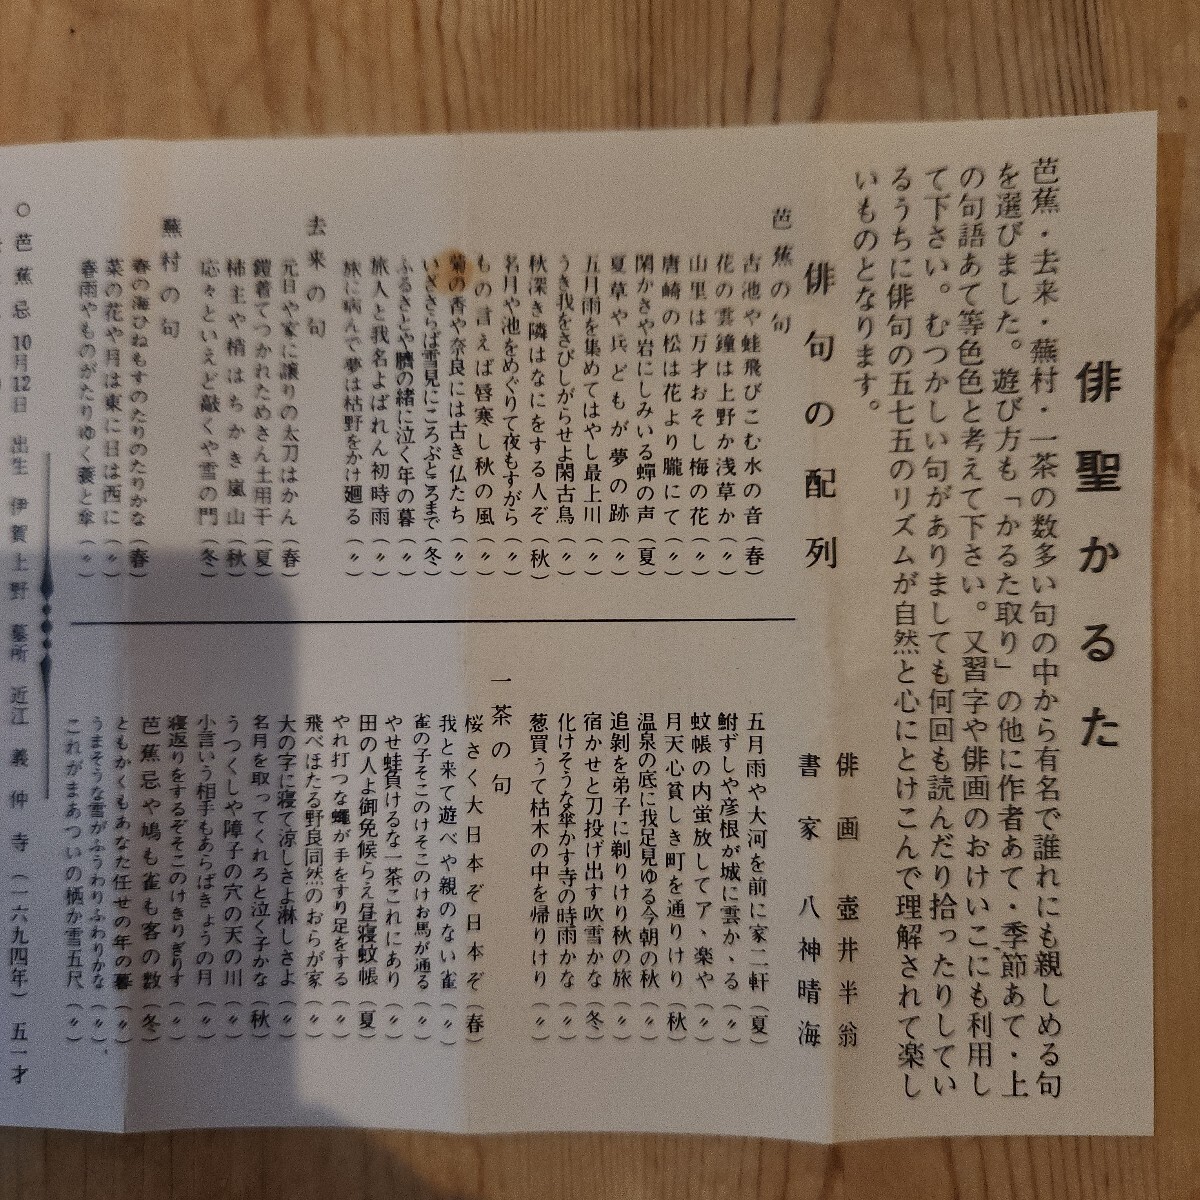 俳聖かるた
芭蕉・去来・蕪村・一茶の数多い句の中から有名で誰れにも親しめる句
を選びました。遊び方も「かるた取り」の他に作者あて・季節あて・上
の句語あて等色色と考えて下さい。又習字や俳画のおけいこにも利用し
て下さい。むつかしい句がありましても何回も読んだり拾ったりしてい
るうちに俳句の五七五のリズムが自然と心にとけこんで理解されて楽し
いものとなります。
俳画 壺井半翁
書家 八神晴海
俳句の配列
芭蕉の句
古池や蛙飛びこむ水の音(春)
花の雲鐘は上野か浅草か(〃)
山里は万才おそし梅の花(〃)
唐崎の松は花より朧にて(〃)
閑かさや岩にしみいる蟬の声(夏)
夏草や兵どもが夢の跡(〃)
五月雨を集めてはやし最上川(〃)
うき我をさびしがらせよ閑古鳥(〃)
秋深き隣はなにをする人ぞ(秋)
名月や池をめぐりて夜もすがら(〃)
もの言えば唇寒し秋の風(〃)
菊の香や奈良には古き仏たち(〃)
いざさらば雪見にころぶところまで(冬)
ふるさとや臍の緒に泣く年の暮(〃)
旅人と我名よばれん初時雨(〃)
旅に病んで夢は枯野をかけ廻る(〃)
去来の句
元日や家に譲りの太刀はかん(春)
鎧着てつかれためさん土用干(夏)
柿主や梢はちかき嵐山(秋)
応々といえど敲くや雪の門(冬)
蕪村の句
春の海ひねもすのたりのたりかな(春)
菜の花や月は東に日は西に(〃)
春雨やものがたりゆく蓑と傘(〃)
五月雨や大河を前に家二軒(夏)
鮒ずしや彦根が城に雲かゝる(〃)
蚊帳の内蛍放してアヽ楽や(〃)
月天心貧しき町を通りけり(秋)
温泉の底に我足見ゆる今朝の秋(〃)
追剝を弟子に剃りけり秋の旅(〃)
宿かせと刀投げ出す吹雪かな(冬)
化けそうな傘かす寺の時雨かな(〃)
葱買うて枯木の中を帰りけり(〃)
一茶の句
桜さく大日本ぞ日本ぞ(春)
我と来て遊べや親のない雀(〃)
雀の子そこのけそこのけお馬が通る(〃)
やせ蛙負けるな一茶これにあり(〃)
田の人よ御免候らえ昼寝蚊帳(夏)
やれ打つな蠅が手をすり足をする(〃)
飛べほたる野良同然のおらが家(〃)
大の字に寝て涼しさよ淋しさよ(〃)
名月を取ってくれろと泣く子かな(秋)
うつくしや障子の穴の天の川(〃)
小言いう相手もあらばきょうの月(〃)
寝返りをするぞそこのけきりぎりす(〃)
芭蕉忌や鳩も雀も客の数(冬)
ともかくもあなた任せの年の暮(〃)
うまそうな雪がふうわりふわりかな(〃)
これがまあついの栖か雪五尺(〃)
○芭蕉忌 10月12日 出生 伊賀上野 墓所 近江 義仲寺(一六九四年) 五一才